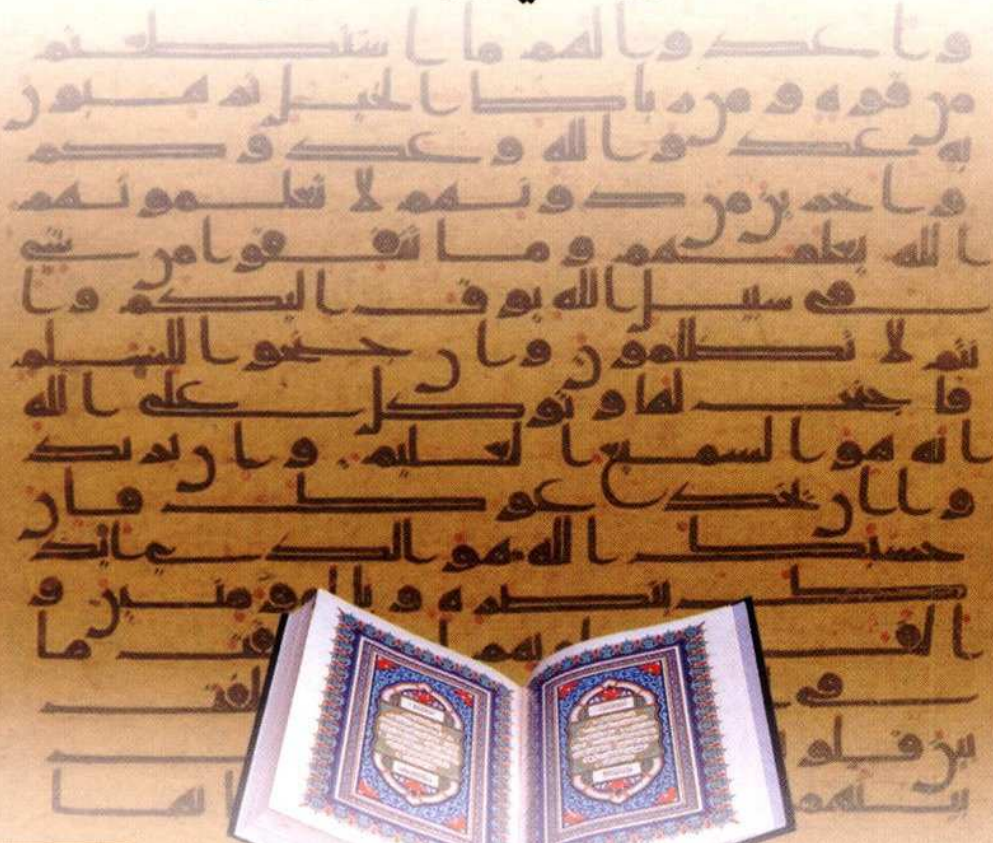 واعدوا لهم ما استطعتم
من قوة ومن رباط الخيل ترهبون
به عدو الله وعدوكم
واخرين من دونهم لا تعلمونهم
الله يعلمهم وما تنفقوا من شي
في سبيل الله يوف اليكم وا
نتم لا تظلمون وان جنحوا للسلم
فاجنح لها وتوكل على الله
انه هو السميع العليم وان يريد
وا ان يخدعوك فان
حسبك الله هو الذي ايدك
بنصره وبالمؤمنين و
الف ما
في الفت
بين قلو
بينهم